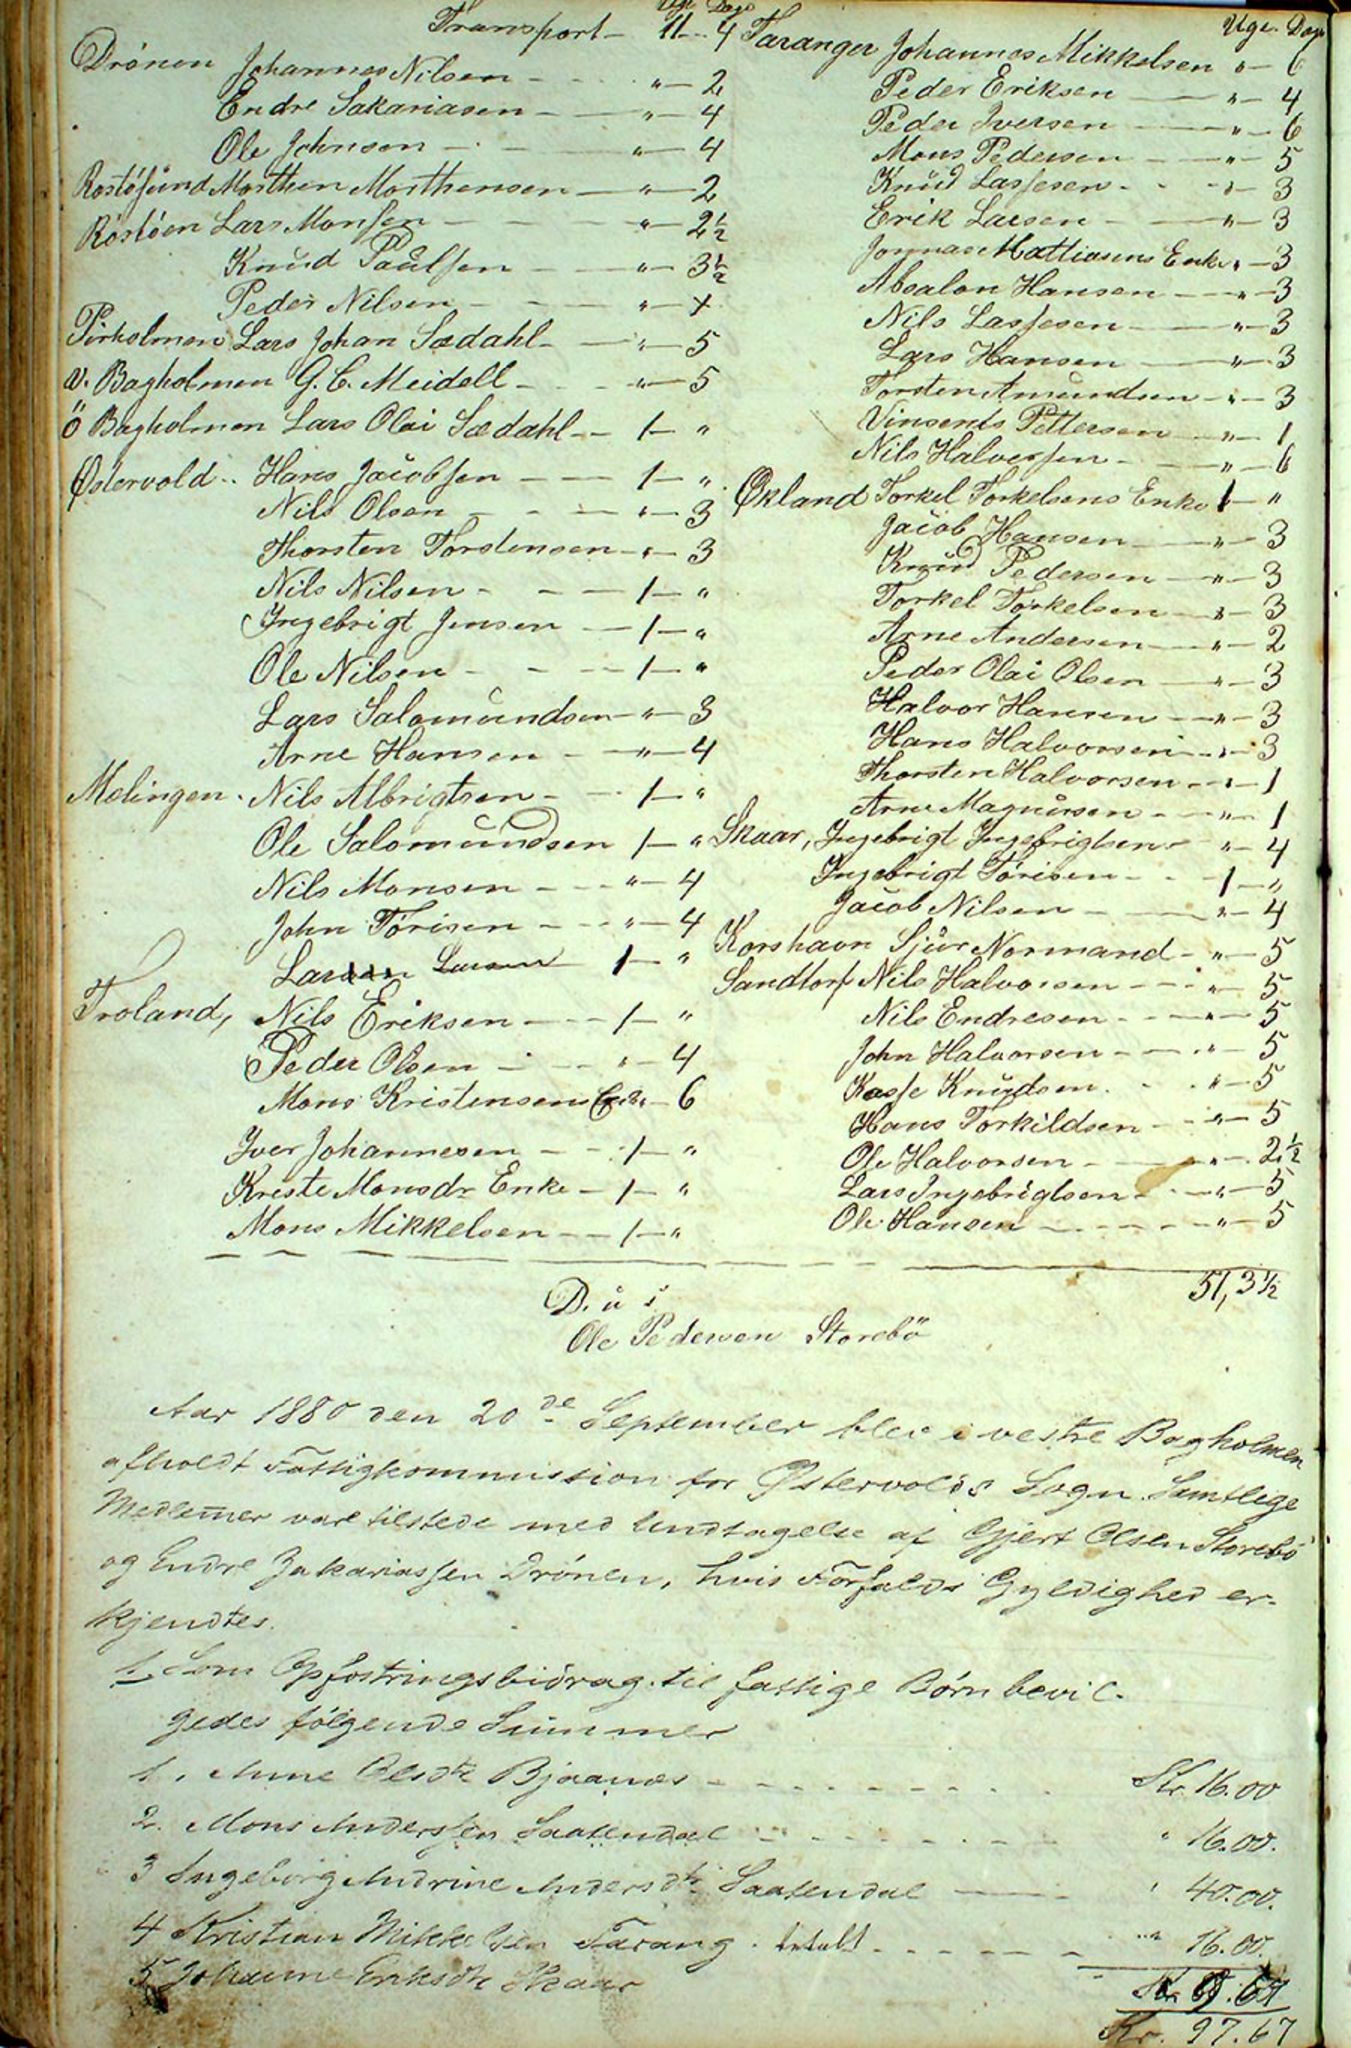 Uge Dage
Transport - 11 - 4
Drönen Johannes Nilsen - - - " - 2
Endre Sakariasen - " - 4
Ole Johnsen - - - " - 4
Rostøsund Morthen Morthensen - " - 2
Röstöen Lars Monsen - - " - 2 1/2
Knud Paulsen - - " - 3 1/2
Peder Nilsen - - " - x
Pirholmen Lars Johan Sædahl - - " - 5
v. Bagholmen G. C. Meidell - - " - 5
ö Bagholmen Lars Olai Sædahl - - 1 - "
Østervold .. Hans Jacobsen - - - 1 - "
Nils Olsen - - - " - 3
Thorsten Torstensen - " - 3
Nils Nilsen - - - 1 - "
Ingebrigt Jensen - 1 - "
Ole Nilsen - - - 1 - "
Lars Salomundsen - " - 3
Arne Hansen - - " - 4
Mølingen . Nils Albrigtsen - - 1 - "
Ole Salomundsen 1 - "
Nils Monsen - - - " - 4
John Törisen - - - " - 4
Larsen 1 - "
Troland, Nils Eriksen - - - 1 - "
Peder Olsen - - - " - 4
Mons Kristensens Enke " - 6
Iver Johannesen - - 1 - "
Kreste Monsdr Enke - 1 - "
Mons Mikkelsen - - 1 - "
Uge. Dage
Taranger Johannes Mikkelsen " - 6
Peder Eriksen - " - 4
Peder Iversen - " - 6
Mons Pedersen - - " - 5
Knud Lassesen - - " - 3
Erik Larsen - " - 3
Jonnas Mattiasens Enke " - 3
Absalon Hansen - " - 3
Nils Lassesen - " - 3
Lars Hansen - " - 3
Torsten Amundsen - " - 3
Vinsents Pettersen - " - 1
Nils Halvorsen - - " - 6
Økland Torkel Torkelsens Enke 1 - "
Jacob Hansen - " - 3
Knud Pedersen - " - 3
Torkel Torkelsen - " - 3
Arne Andersen - " - 2
Peder Olai Olsen - " - 3
Halvor Hansen - " - 3
Hans Halvorsen - " - 3
Thorsten Halvorsen - " - 1
Arne Magnusen - - " - 1
Skaar, Ingebrigt Ingebrigtsen - " - 4
Ingebrigt Törisen - - 1 - "
Jacob Nilsen - - " - 4
Korshavn Sjur Normand - " - 5
Sandtorf Nils Halvorsen - - " - 5
Nils Endresen - - - " - 5
John Halvorsen - - - " - 5
Kasse Knudsen . . . " - 5
Hans Torkildsen - - " - 5
Ole Halvorsen - - " - 2 1/2
Lars Ingebrigtsen - - " - 5
Ole Hansen - - - - " - 5
51, 3 1/2
D. u s
Ole Pedersen Storebö
Aar 1880 den 20de September blev i vestre Bagholmen
afholdt Fattigkommission for Østervolds Sogn. Samtlige
Medlemer var tilstede med Undtagelse af Gjert Olsen Storebø
og Endre Zakariassen Drönen, hvis Forfalds Gyldighed er-
kjendtes.
1, Som Opfostringsbidrag til fattige Börn bevil-
gedes fölgende Summer
1, Anne Olsdtr Bjaanæs - - - - - - - Kr. 16.00
2. Mons Anderssen Saatendal - - - - - - " 16.00.
3 Ingeborg Andrine Andersdtr Saatendal - - " 40.00.
4 Kristian Mikkelsen Tarang . betalt - - - - " 16.00.
5 Johanne Eriksdtr Skaar 9.67
Kr. 97.67